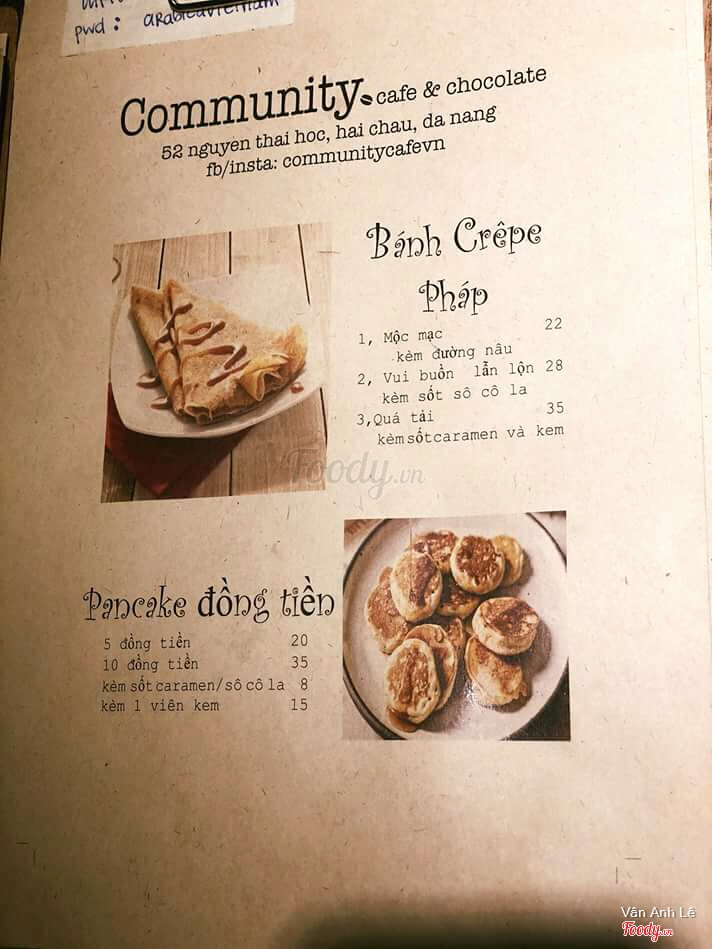 pwd : arabicavietnam
Community cafe & chocolate
52 nguyen thai hoc, hai chau, da nang
fb/insta: communitycafevn
Bánh Crêpe
Pháp
1, Mộc mạc 22
kèm đường nâu
2, Vui buồn lẫn lộn 28
kèm sốt sô cô la
3,Quá tải 35
kèm sốt caramen và kem
Foody.vn
Pancake đồng tiền
5 đồng tiền 20
10 đồng tiền 35
kèm sốt caramen/sô cô la 8
kèm 1 viên kem 15
Vân Anh Lê
Foody.vn